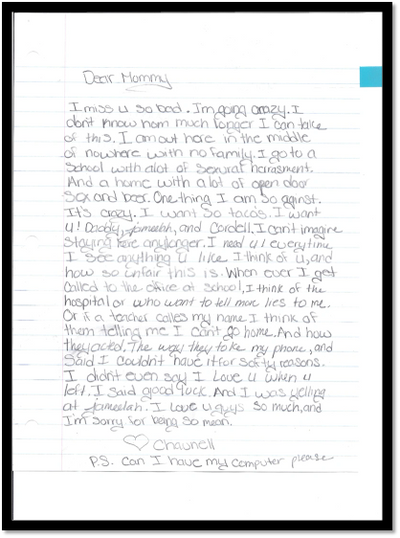 Dear Mommy
I miss u so bad. I'm going crazy. I
don't know how much longer I can take
of this. I am out here in the middle
of nowhere with no family. I go to a
school with alot of sexural harrasment.
And a home with a lot of open door
Sex and beer. One thing I am so aginst.
It's crazy. I want so tacos. I want
u! Daddy, Jameelah, and Cordell. I can't imagine
staying here anylonger. I need u! everytime
I see anything u like I think of u, and
how so unfair this is. When ever I get
called to the office at school, I think of the
hospital or who want to tell more lies to me.
Or if a teacher calles my name I think of
them telling me I can't go home. And how
they acted. The way they toke my phone, and
said I couldn't have it for safty reasons.
I didn't even say I Love u when u
left. I said good luck. And I was yelling
at Jameelah. I Love u guys so much, and
I'm sorry for being so mean.
♡ Chaunell
P.S. can I have my computer please